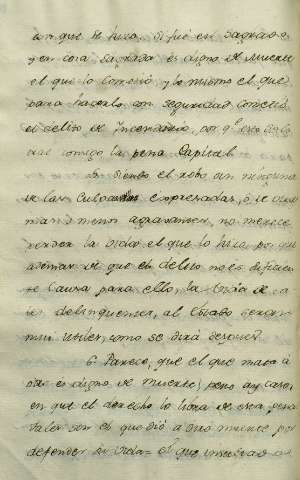 con que se hizo, si fué en sagrado,
y en cosa sagrada es digno de muerte
el que lo cometió y lo mismo el que
para hacerlo con seguridad cometió
el delito de Incendiario, por qe. este
consigo la pena Capital.
siendo el robo sin ninguna
de las empresadas, ó de otro
mas ó menos agravantes, no merece
perder la vida el que lo hizo, por que
ademas de que el delito no es suficiente
causa para ello, la vida de
delinquentes, al Estado
mui utiles, como se dirá despues.
6. Parece, que el que mata á
otro es digno de muerte, pero ay casos
en que el derecho lo libra de esta pena
tales son el que dió a otro muerte por
defender su vida = el que